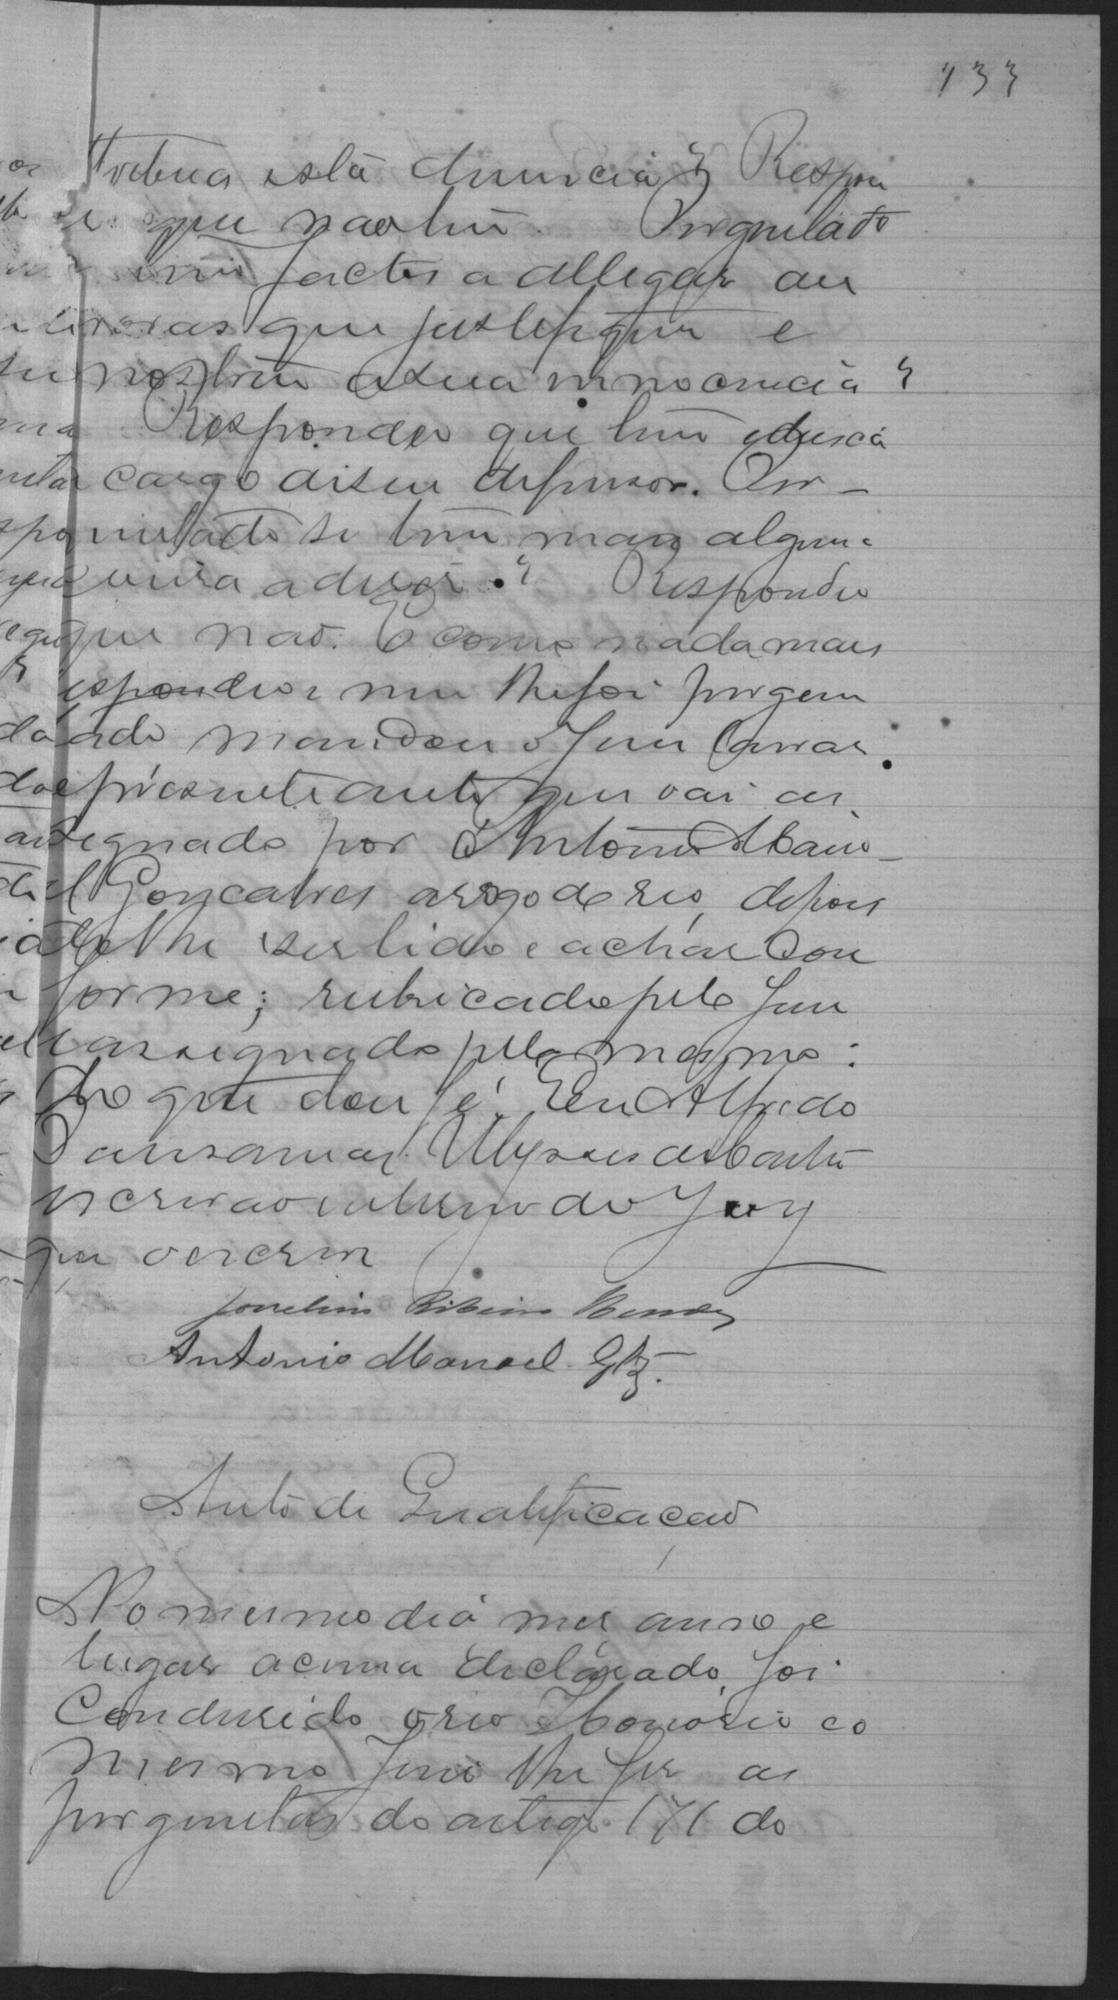 133
está denuncia? Respon
que não tem. Perguntado
factos a allegar ou
que justefiquem e
a sua innocencia?
Respondeu que tem e deicá
cargo di seu defensor. Per-
guntado si tem mais alguma
a dizer? Respondeu
que não. E como nada mais
respondeu nem lhe foi pergun
tado mandou o Juiz lavrar
o presente auto que vai as
assegnado por Antonio Mano-
el Goncalves arrogo do reo, depois
de lhe ser lido e achar con
forme; rubricado pelo Juiz
e assegnado pelo mesmo:
Do que dou fé. Eu Alfredo
Ulysses
escrivão interino do Jury
que o escrevi
Ribeiro Mendes
Antonio Manoel Glz.
Auto de Qualificação
No mesmo diá mez anno e
lugar acima declárado, foi
conduzido o reo Honório eo
mesmo Juiz lhe fez as
perguntas do artigo 171 do